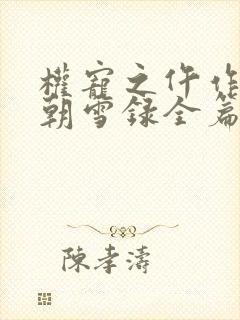 權寵之仵作
朝雪録全篇
陳孝濤